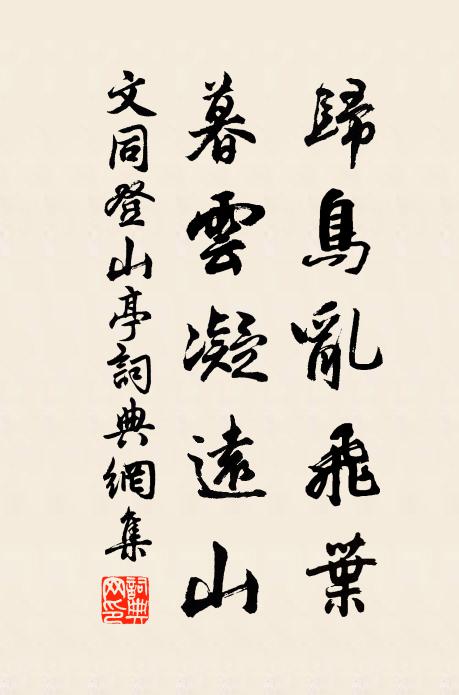 歸鳥亂飛葉
暮雲凝遠山
文同登山亭詞典網集
詞典
网印